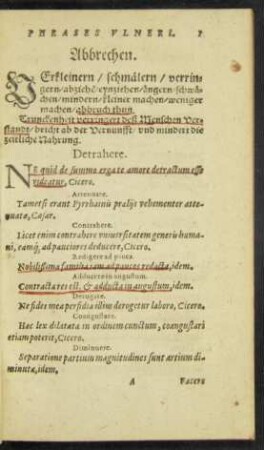 PHRASES VLNERI. 1
Abbrechen.
VErkleinern / schmälern / verrin-
gern / abziehē / eynziehen / ängern / schwä-
chen / mindern / kleiner machen / weniger
machen / abbruch thun.
Trunckenheit verringert deß Menschen Ver-
standt / bricht ab der Vernunfft / vnd mindert die
zeitliche Nahrung.
Detrahere.
NE quid de summo erga te amore detractum esse
videatur, Cicero.
Attenuare.
Tametsi erant Pyrrhainis prælijs vehementer atte-
nuata, Cæsar.
Contrahere.
Licet enim contrahere vniuersitatem generis huma
ni, eamq; ad pauciores deducere, Cicero.
Redigere ad pauca.
Nobilissima familia iam ad paucos redacta, idem.
Adducere in angustum.
Contracta res est, & adducta in angustum, idem.
Derogare.
Ne fides mea perfidia illius derogetur laboro, Cicero.
Coangustare.
Hæc lex dilatata in ordinem cunctum, coangustari
etiam poterit, Cicero.
Diminuere.
Separatione partium magnitudines sunt artium di
minutæ, idem.
A Facere